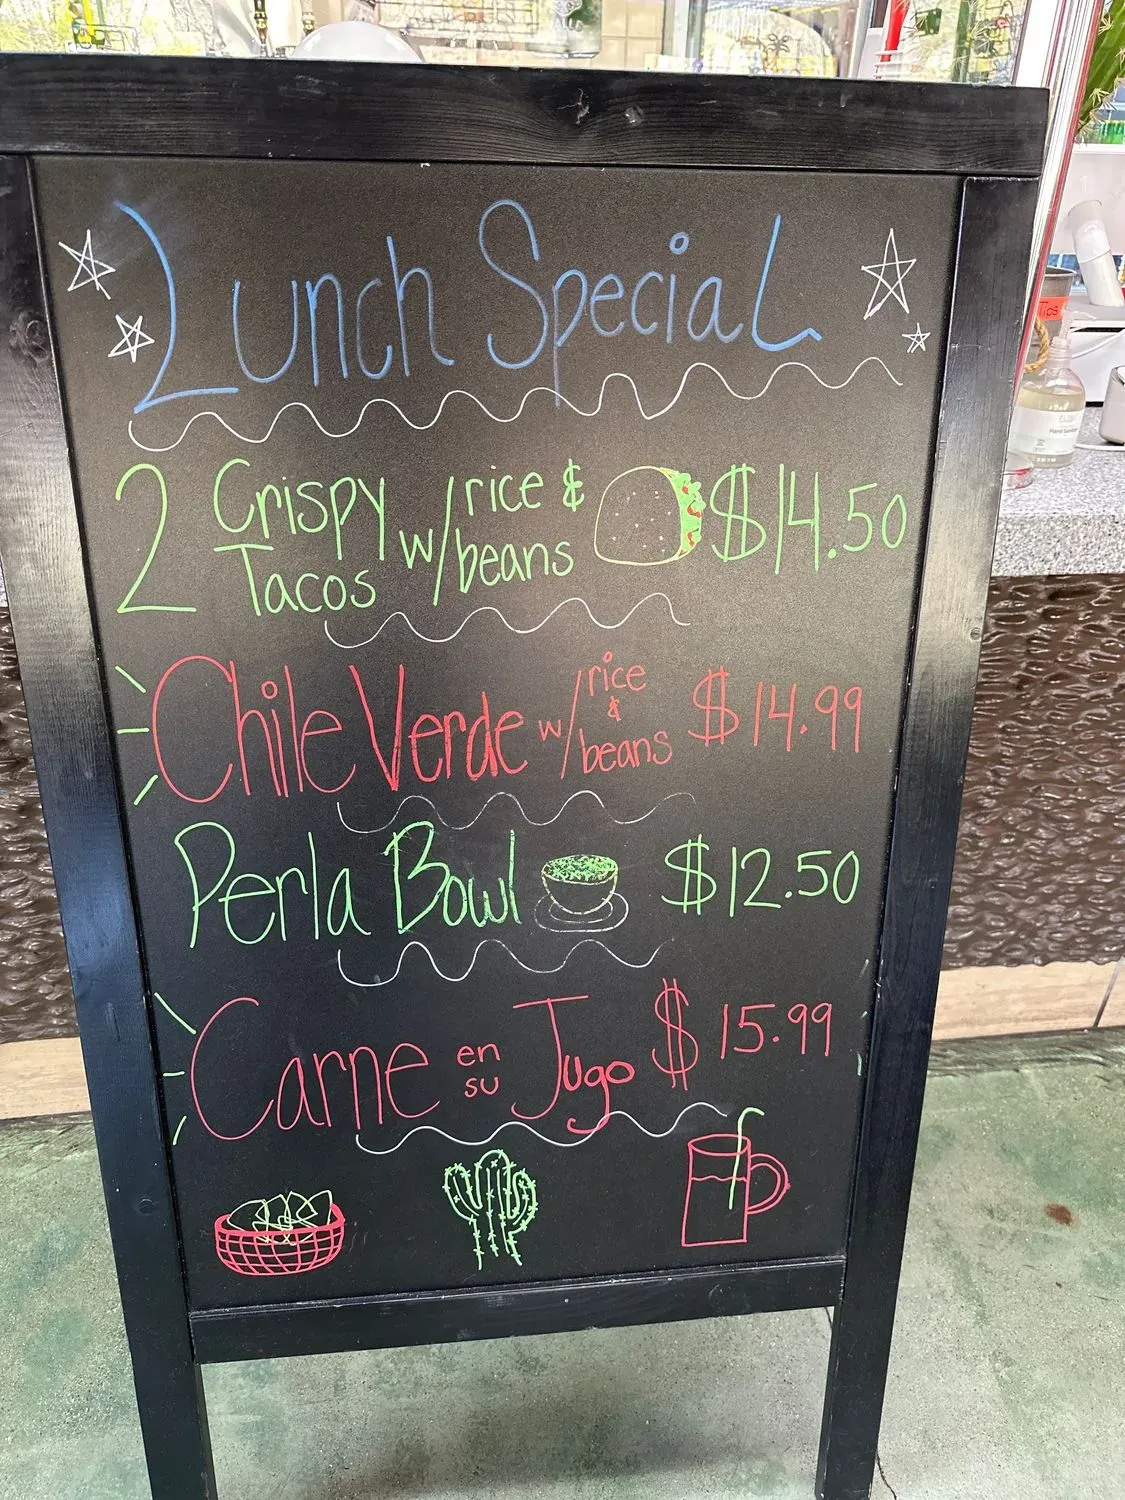 Lunch Special
2 Crispy Tacos w/ rice & beans $14.50
Chile Verde w/ rice & beans $14.99
Perla Bowl $12.50
Carne en su Jugo $15.99
Tips
Hand Sanitizer